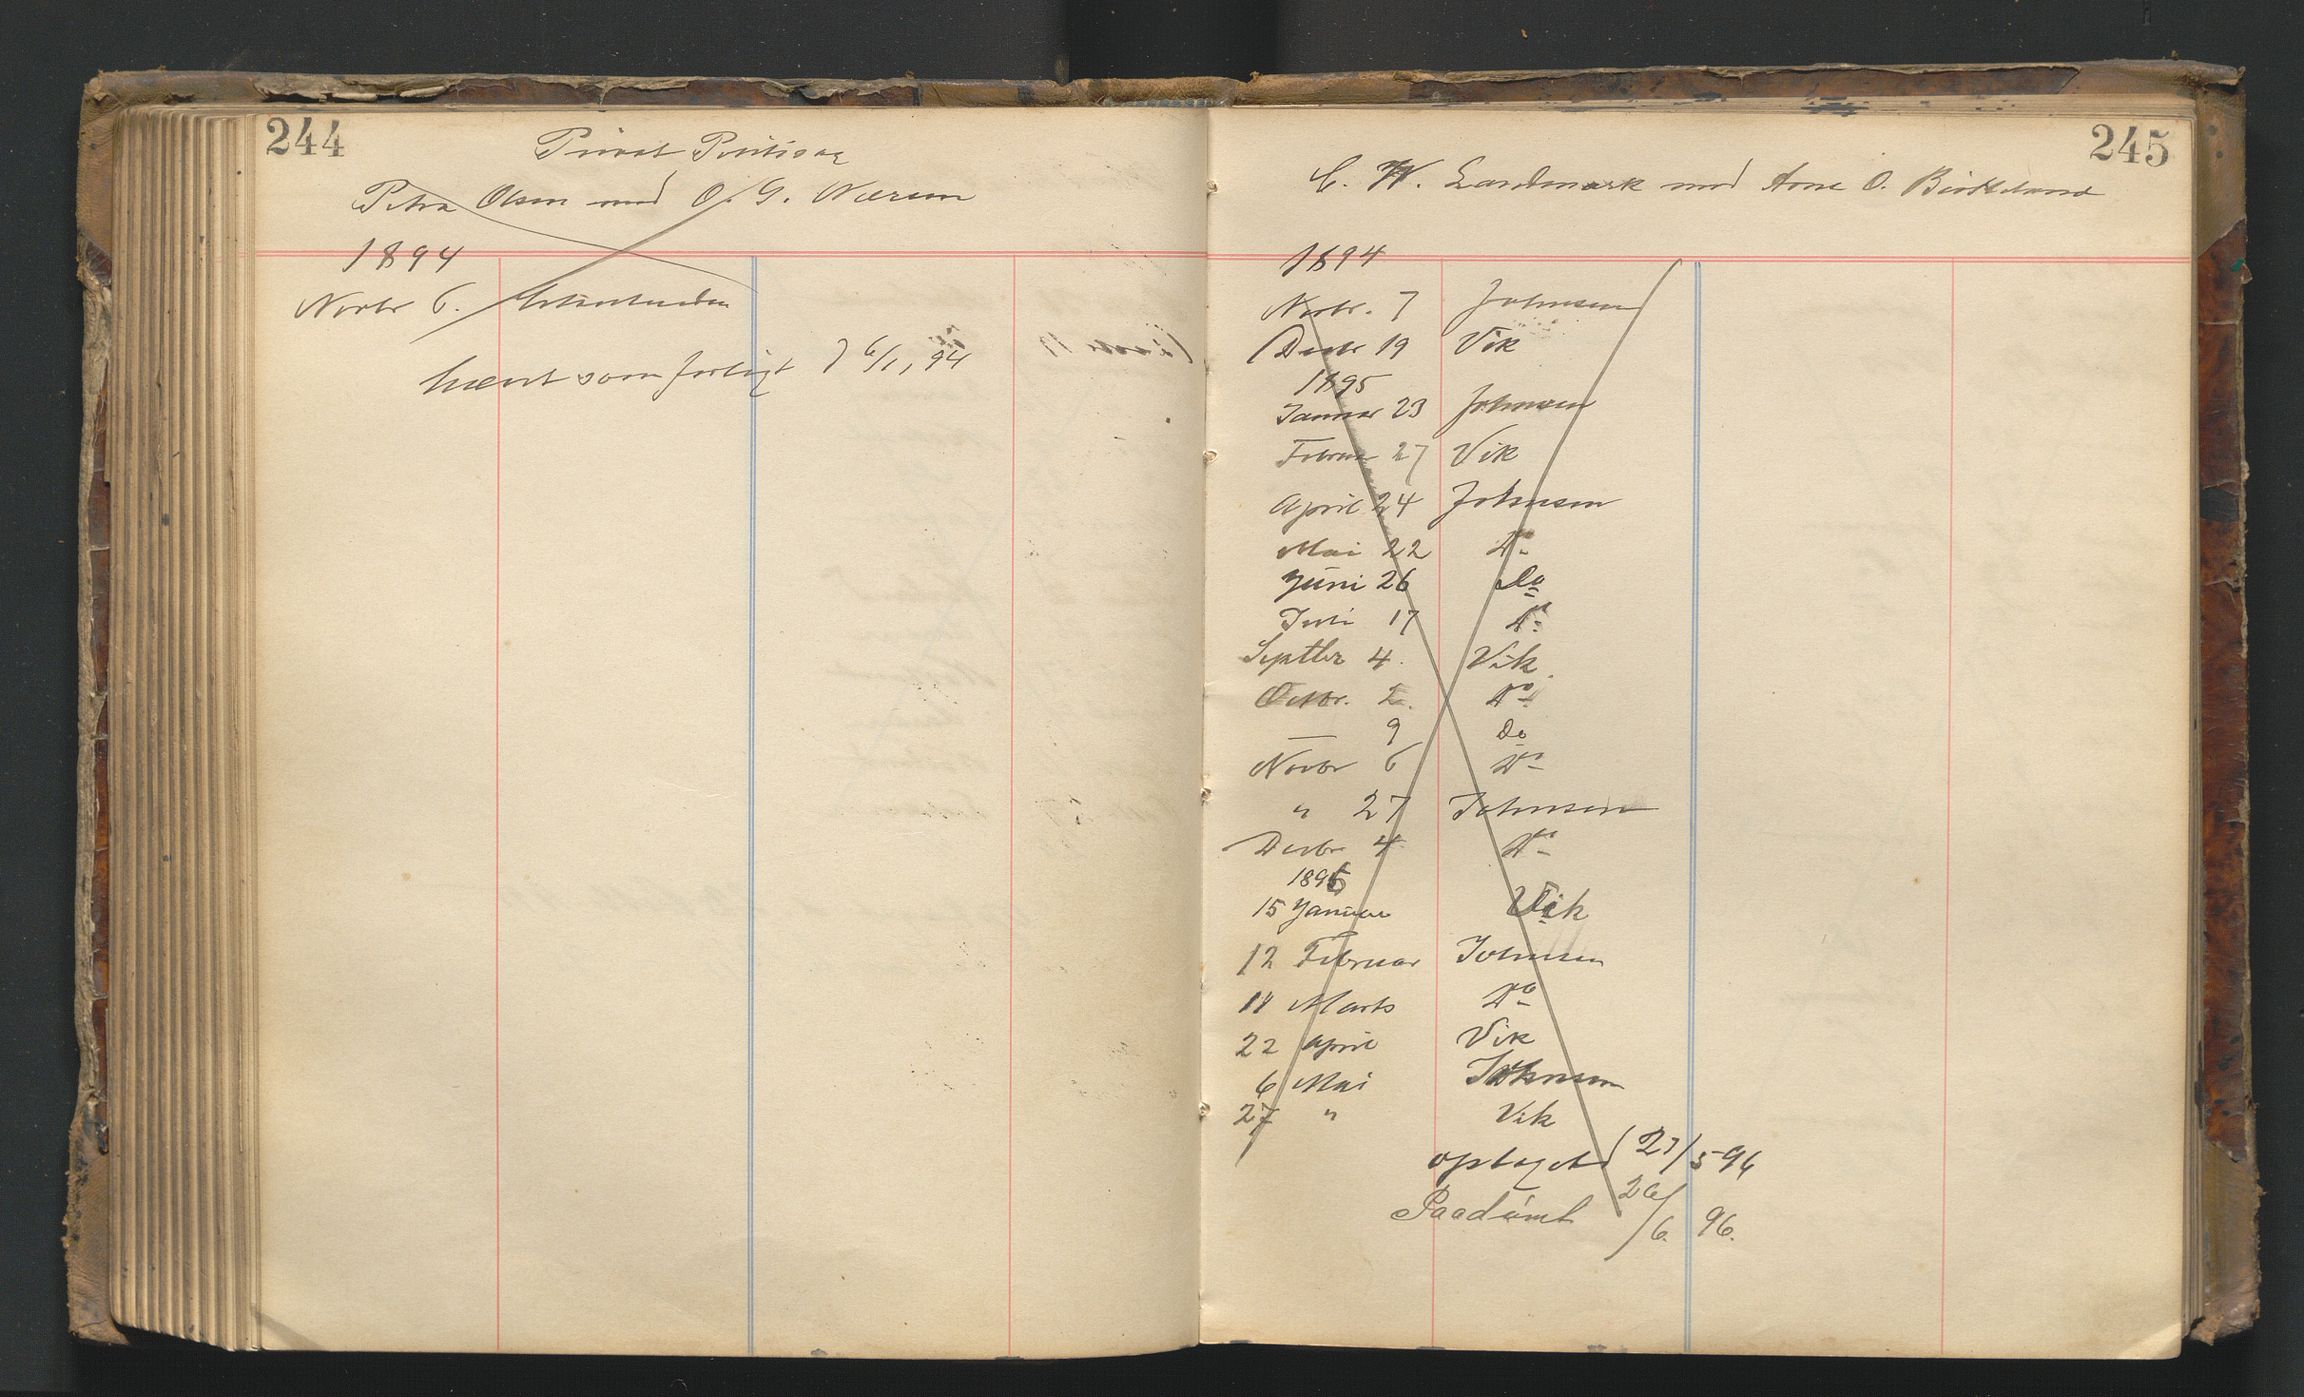 244
Privat Politisag
Petra Olsen mod O. G. Næssen
1894
Novbr 6.
hævet som forligt 6/1, 94
245
C. W. Landmark mod Arne O. Birkeland
1894
Novbr. 7 Johnsen
Decbr 19 Vik
1895
Januar 23 Johnsen
Februar 27 Vik
April 24 Johnsen
Mai 22 Do
Juni 26 Do
Juli 17 Do
Septbr 4. Vik
Octbr. 2. Do
— 9 Do
Novbr 6 Do
" 27 Johnsen
Decbr 4 Do
1896
15 Januar Vik
12 Februar Johnsen
11 Marts Do
22 April Vik
6 Mai Johnsen
27 " Vik
optaget 27/5 96
Paadømt 26/6. 96.